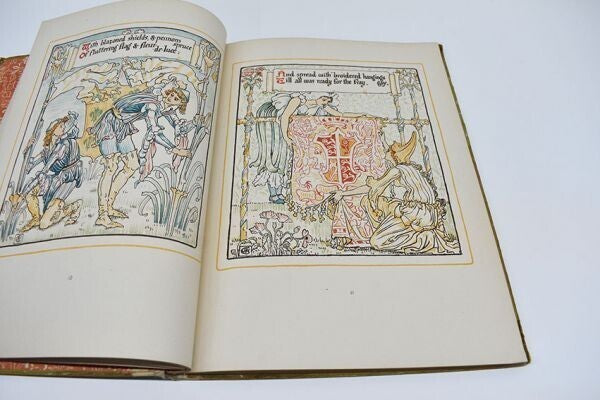 With blazoned shields, & pennons spruce
Of fluttering flag & fleur-de-luce.
And spread with broidered hangings gay
Till all was ready for the fray.